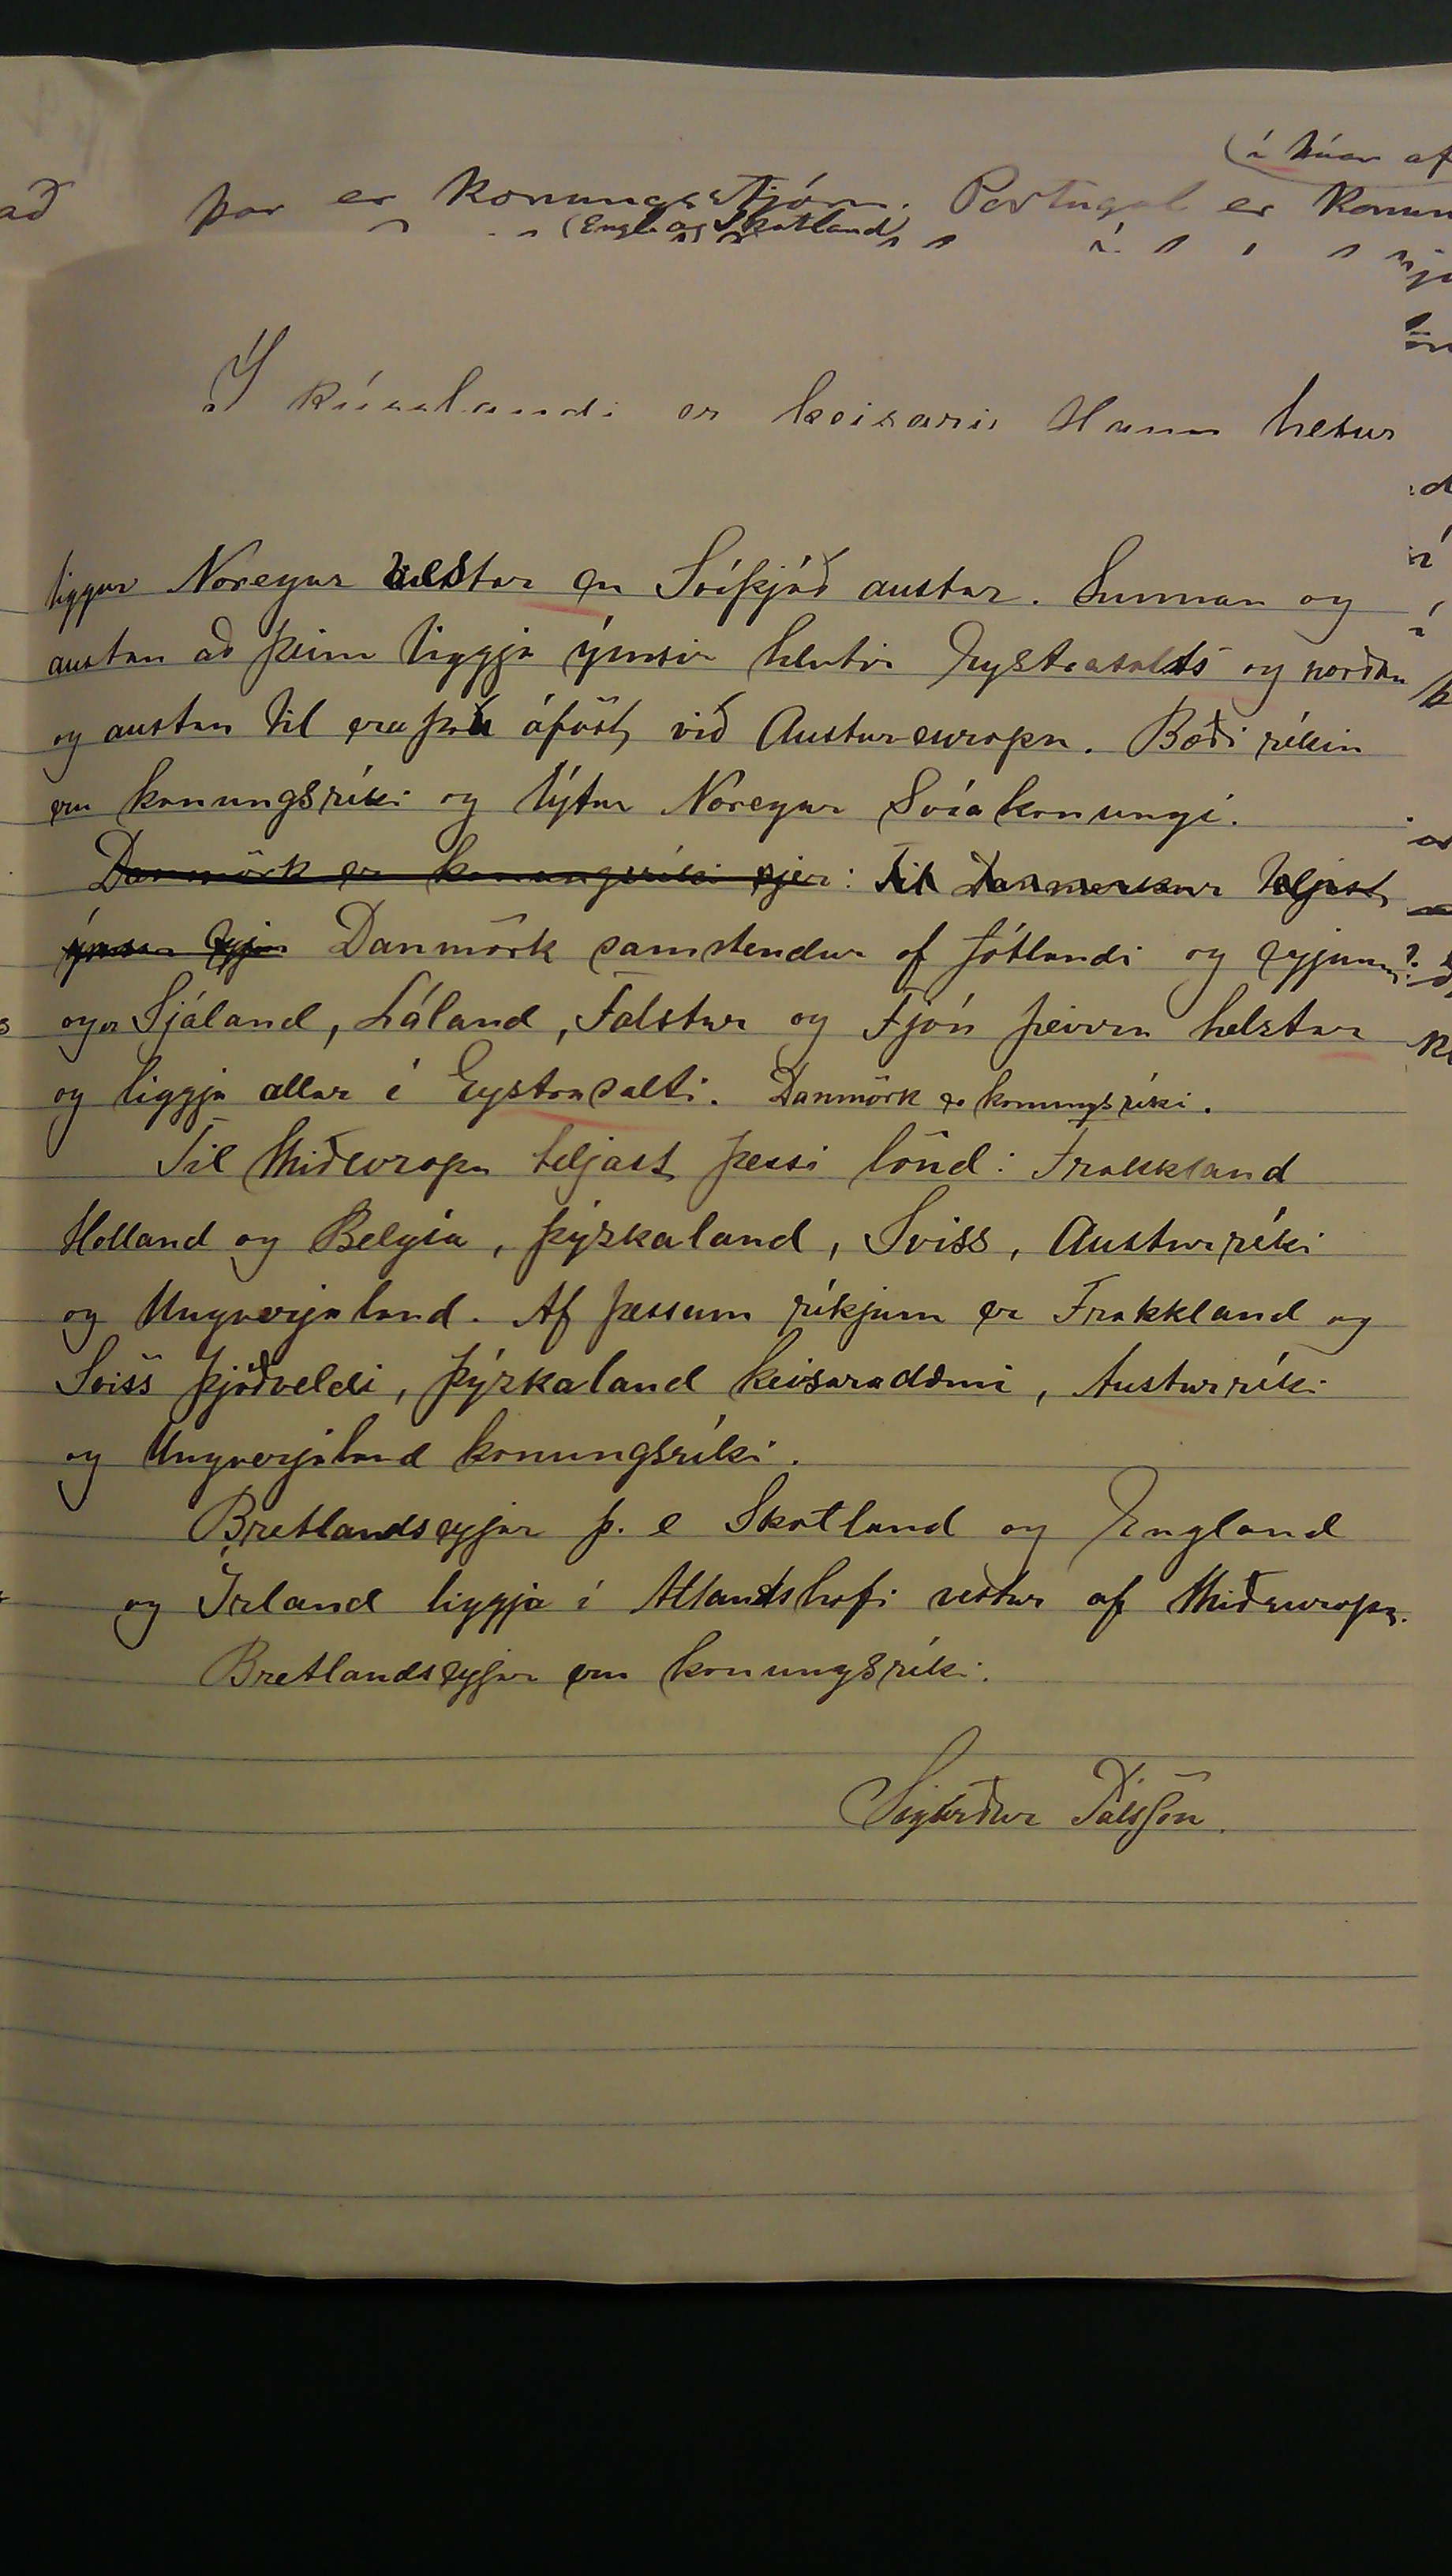 (í húar af
að þar er konungsstjórn. Portugal er Konun
(Engl og Skotland)
Í Rússlandi er keisari. Hann hefur
liggur Noregur vestar en Svíþjóð austar. Sunnan og
austan að þeim liggja ýmsir hlutir Eystrasalts og norðan
og austan til eru þau áföst við Austureuropu. Bæði ríkin
eru konungsríki og lýtur Noregur Svíakonungi.
Danmörk er konungsríki sjer: Til Danmerkur teljast
ýmsar eyjar Danmörk samstendur af Jótlandi og eyjum
og er Sjáland, Láland, Falstur og Fjón þeirra helstar
og liggja allar í Eystrasalti. Danmörk er konungsríki.
Til Miðevropu teljast þessi lönd: Frakkland
Holland og Belgía, Þýzkaland, Sviss, Austurríki
og Ungverjaland. Af þessum ríkjum er Frakkland og
Sviss þjóðveldi, Þýzkaland keisaradæmi, Austurríki
og Ungverjaland konungsríki.
Bretlandseyjar þ. e Skotland og England
og Írland liggja í Atlandshafi vestur af Miðevropu.
Bretlandseyjar eru konungsríki.
Sigurður Pálsson.